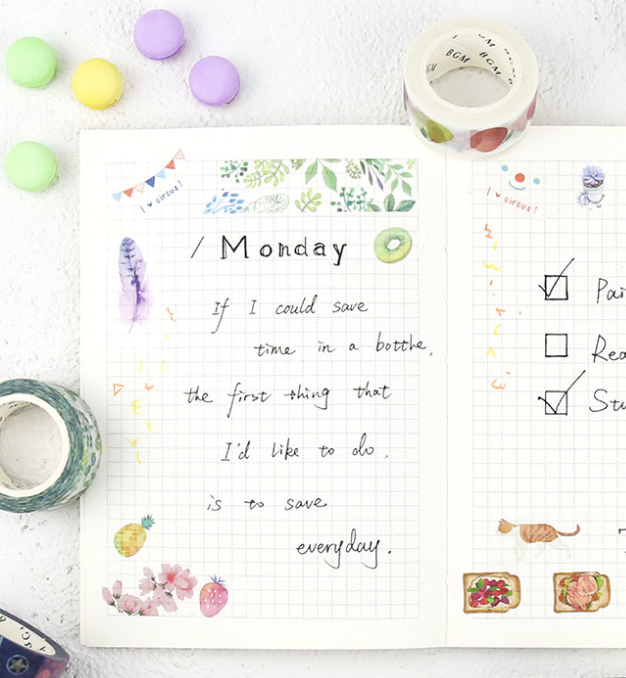 BGM BGM
I ♥ circus!
/ Monday
If I could save
time in a botthe,
the first thing that
I'd like to do.
is to save
everyday.
I ♥ circus!
Pai
Rea
Stu